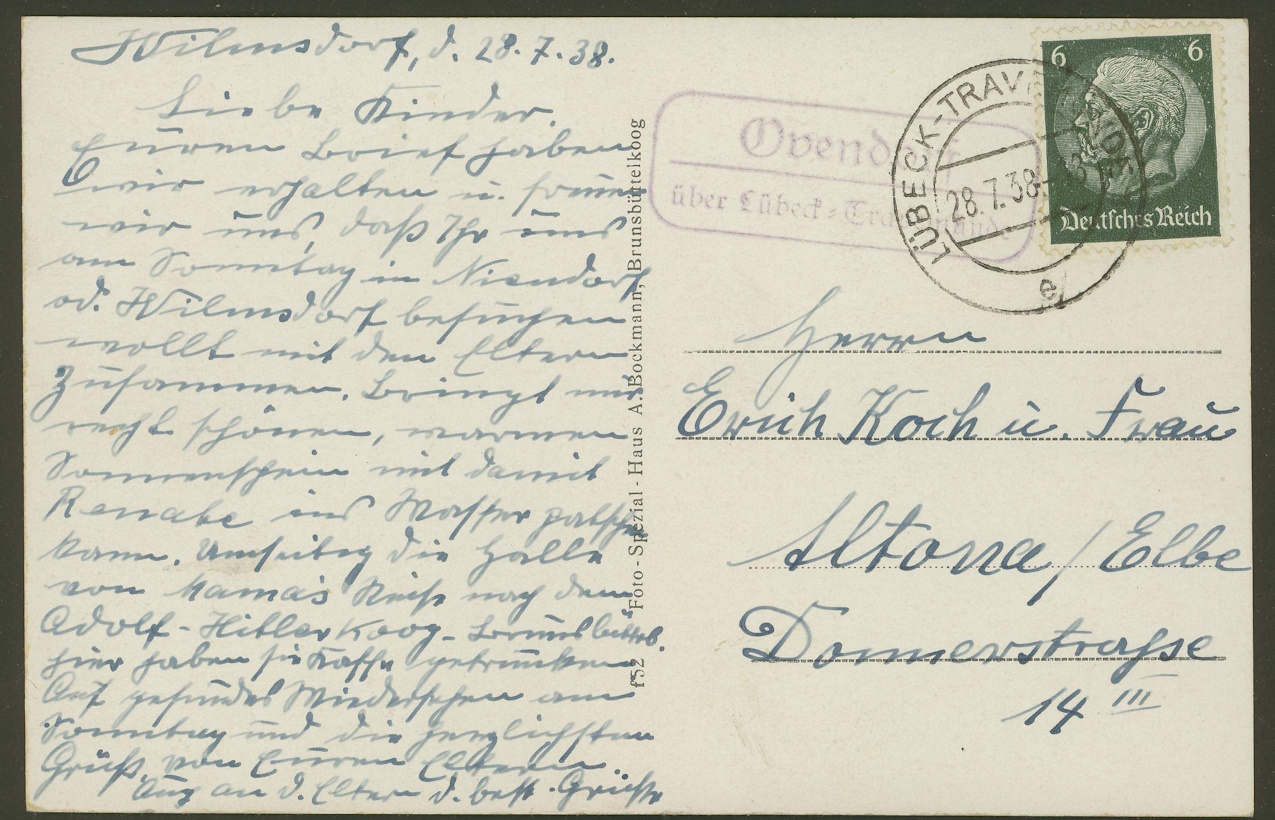 Wilmsdorf, d. 28.7.38.
Liebe Kinder.
Euren Brief haben
wir erhalten u. freuen
wir uns, daß Ihr uns
am Sonntag in Niendorf
od. Wilmsdorf besuchen
wollt mit den Eltern
zusammen. Bringt nur
recht schönen, warmen
Sonnenschein mit damit
Renate ins Wasser
kann. Umseitig die Halle
von Mama's Reise nach dem
Adolf-Hitler Koog - Brunsbüttel.
hier haben sie Kaffe getrunken
Auf gesundes Wiedersehen am
Sonntag und die herzlichsten
Grüße von Euren Eltern.
Auch an d. Eltern d. best. Grüße
f52 Foto-Spezial-Haus A. Bockmann, Brunsbüttelkoog
Ovendorf
über Lübeck-Travemünde
LÜBECK-TRAVEMÜNDE
28.7.38
e
6 6
Deutsches Reich
Herrn
Erich Koch u. Frau
Altona/Elbe
Donnerstraße
14 III